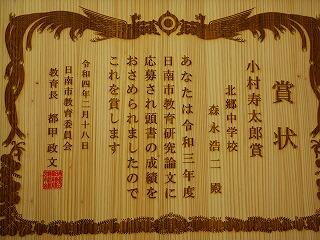 賞状
小村寿太郎賞
北郷中学校
森永浩二 殿
あなたは令和三年度
日南市教育研究論文に
応募され頭書の成績を
おさめられましたので
これを賞します
令和四年二月十八日
日南市教育委員会
教育長 都甲政文